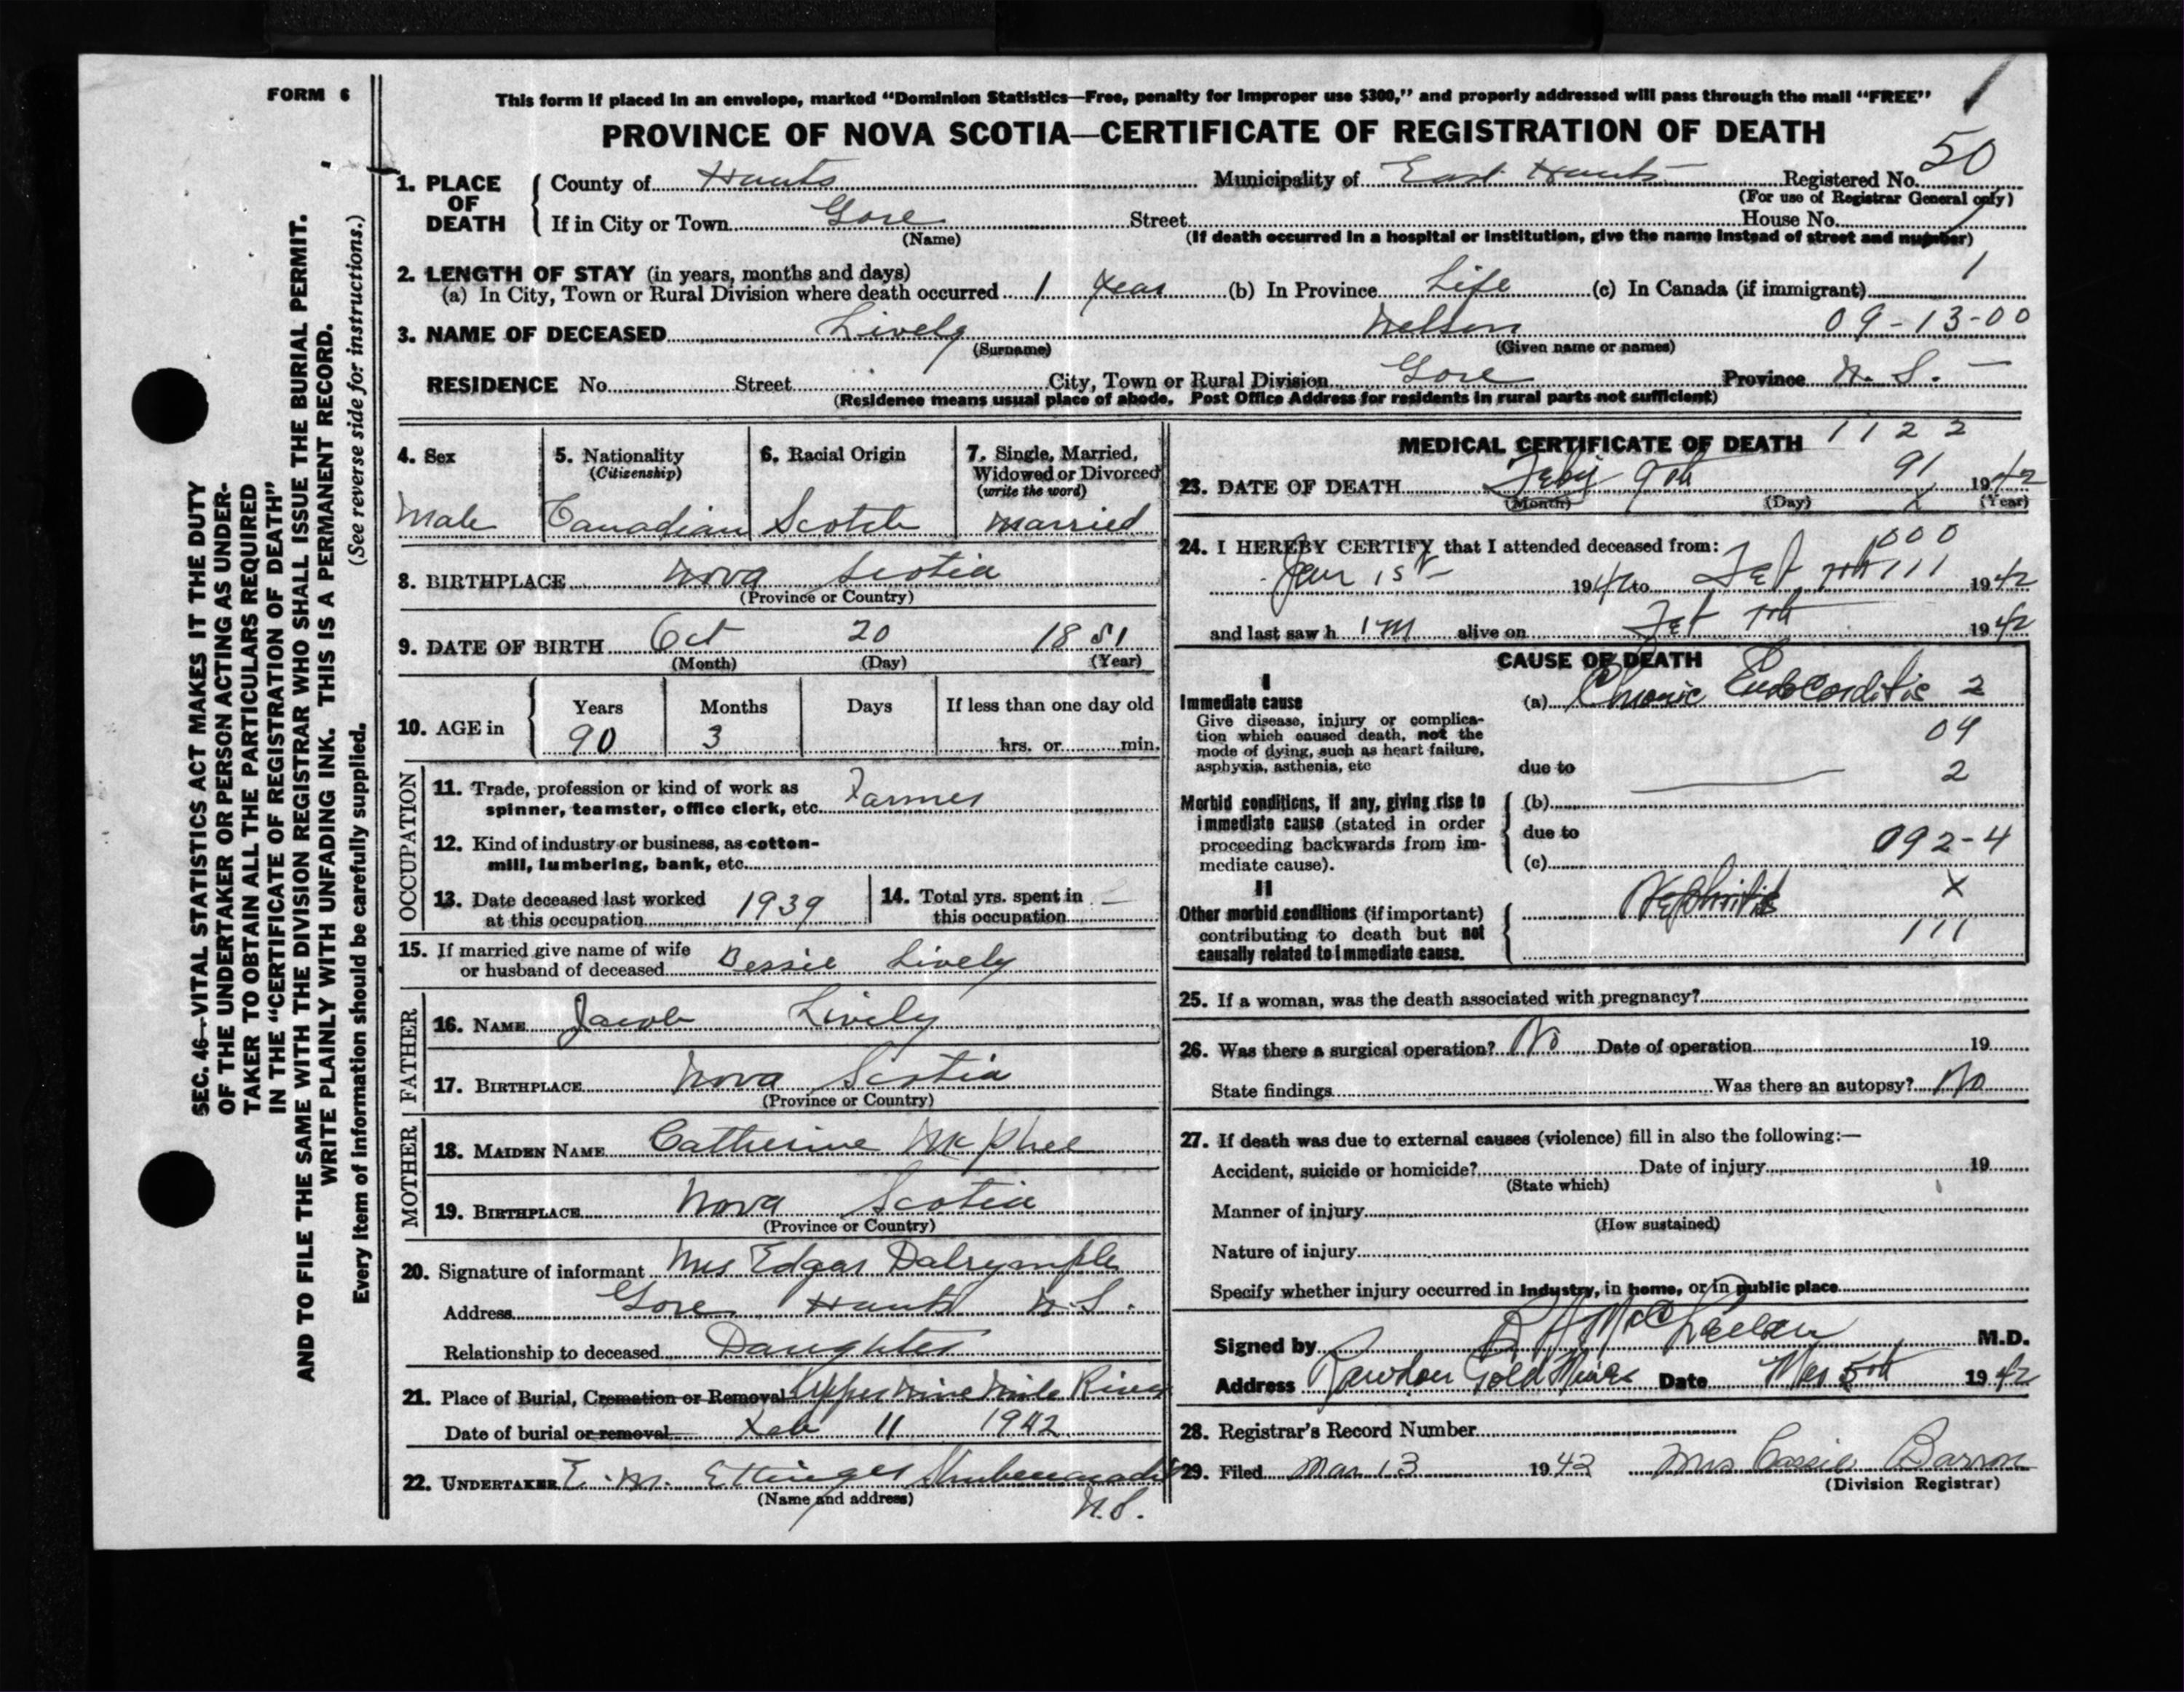 FORM 6
This form if placed in an envelope, marked "Dominion Statistics—Free, penalty for improper use $300," and properly addressed will pass through the mail "FREE"
PROVINCE OF NOVA SCOTIA—CERTIFICATE OF REGISTRATION OF DEATH
SEC. 46—VITAL STATISTICS ACT MAKES IT THE DUTY
OF THE UNDERTAKER OR PERSON ACTING AS UNDER-
TAKER TO OBTAIN ALL THE PARTICULARS REQUIRED
IN THE "CERTIFICATE OF REGISTRATION OF DEATH"
AND TO FILE THE SAME WITH THE DIVISION REGISTRAR WHO SHALL ISSUE THE BURIAL PERMIT.
WRITE PLAINLY WITH UNFADING INK. THIS IS A PERMANENT RECORD.
Every item of information should be carefully supplied. (See reverse side for instructions.)
1. PLACE OF DEATH
County of Hants Municipality of East Hants Registered No. 50
(For use of Registrar General only)
If in City or Town Gore Street House No.
(Name) (If death occurred in a hospital or institution, give the name instead of street and number)
2. LENGTH OF STAY (in years, months and days) 1
(a) In City, Town or Rural Division where death occurred 1 year (b) In Province Life (c) In Canada (if immigrant)
3. NAME OF DECEASED Lively Nelson 09-13-00
(Surname) (Given name or names)
RESIDENCE No. Street City, Town or Rural Division Gore Province N. S. —
(Residence means usual place of abode. Post Office Address for residents in rural parts not sufficient)
4. Sex
Male
5. Nationality
(Citizenship)
Canadian
6. Racial Origin
Scotch
7. Single, Married,
Widowed or Divorced
(write the word)
Married
8. BIRTHPLACE Nova Scotia
(Province or Country)
9. DATE OF BIRTH Oct 20 1851
(Month) (Day) (Year)
10. AGE in
Years Months Days If less than one day old
90 3 hrs. or min.
OCCUPATION
11. Trade, profession or kind of work as
spinner, teamster, office clerk, etc. Farmer
12. Kind of industry or business, as cotton-
mill, lumbering, bank, etc.
13. Date deceased last worked
at this occupation 1939
14. Total yrs. spent in
this occupation —
15. If married give name of wife
or husband of deceased Bessie Lively
FATHER
16. NAME Jacob Lively
17. BIRTHPLACE Nova Scotia
(Province or Country)
MOTHER
18. MAIDEN NAME Catherine McPhee
19. BIRTHPLACE Nova Scotia
(Province or Country)
20. Signature of informant Mrs Edgar Dalrymple
Address Gore Hants N.S.
Relationship to deceased Daughter
21. Place of Burial, Cremation or Removal Upper Nine Mile River
Date of burial or removal Feb 11 1942
22. UNDERTAKER E. M. Ettinger Shubenacadie
(Name and address) N.S.
MEDICAL CERTIFICATE OF DEATH 1122
23. DATE OF DEATH Feby 9th 91 1942
(Month) (Day) X (Year)
24. I HEREBY CERTIFY that I attended deceased from: 000
Jan 1st 1942 to Feb 7th 111 1942
and last saw h im alive on Feb 7th 1942
CAUSE OF DEATH
I
Immediate cause
Give disease, injury or complica-
tion which caused death, not the
mode of dying, such as heart failure,
asphyxia, asthenia, etc
(a) Chronic Endocarditis 2
09
due to 2
Morbid conditions, if any, giving rise to
immediate cause (stated in order
proceeding backwards from im-
mediate cause).
(b)
due to 092-4
(c)
II
Other morbid conditions (if important)
contributing to death but not
causally related to immediate cause.
Nephritis X
111
25. If a woman, was the death associated with pregnancy?
26. Was there a surgical operation? No Date of operation 19
State findings Was there an autopsy? No
27. If death was due to external causes (violence) fill in also the following:—
Accident, suicide or homicide? Date of injury 19
(State which)
Manner of injury
(How sustained)
Nature of injury
Specify whether injury occurred in industry, in home, or in public place
Signed by M.D.
Address Rawdon Gold Mines Date Mar 5th 1942
28. Registrar's Record Number
29. Filed Mar 13 1942 Mrs Cassie Barron
(Division Registrar)